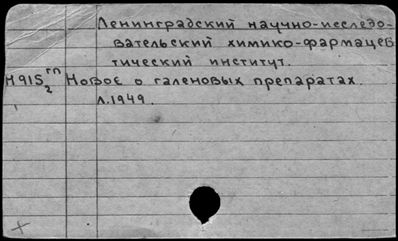 Ленинградский научно-исследо-
вательский химико-фармацев
тический институт.
Н915 гп 2 Новое о галеновых препаратах.
Л.1949.